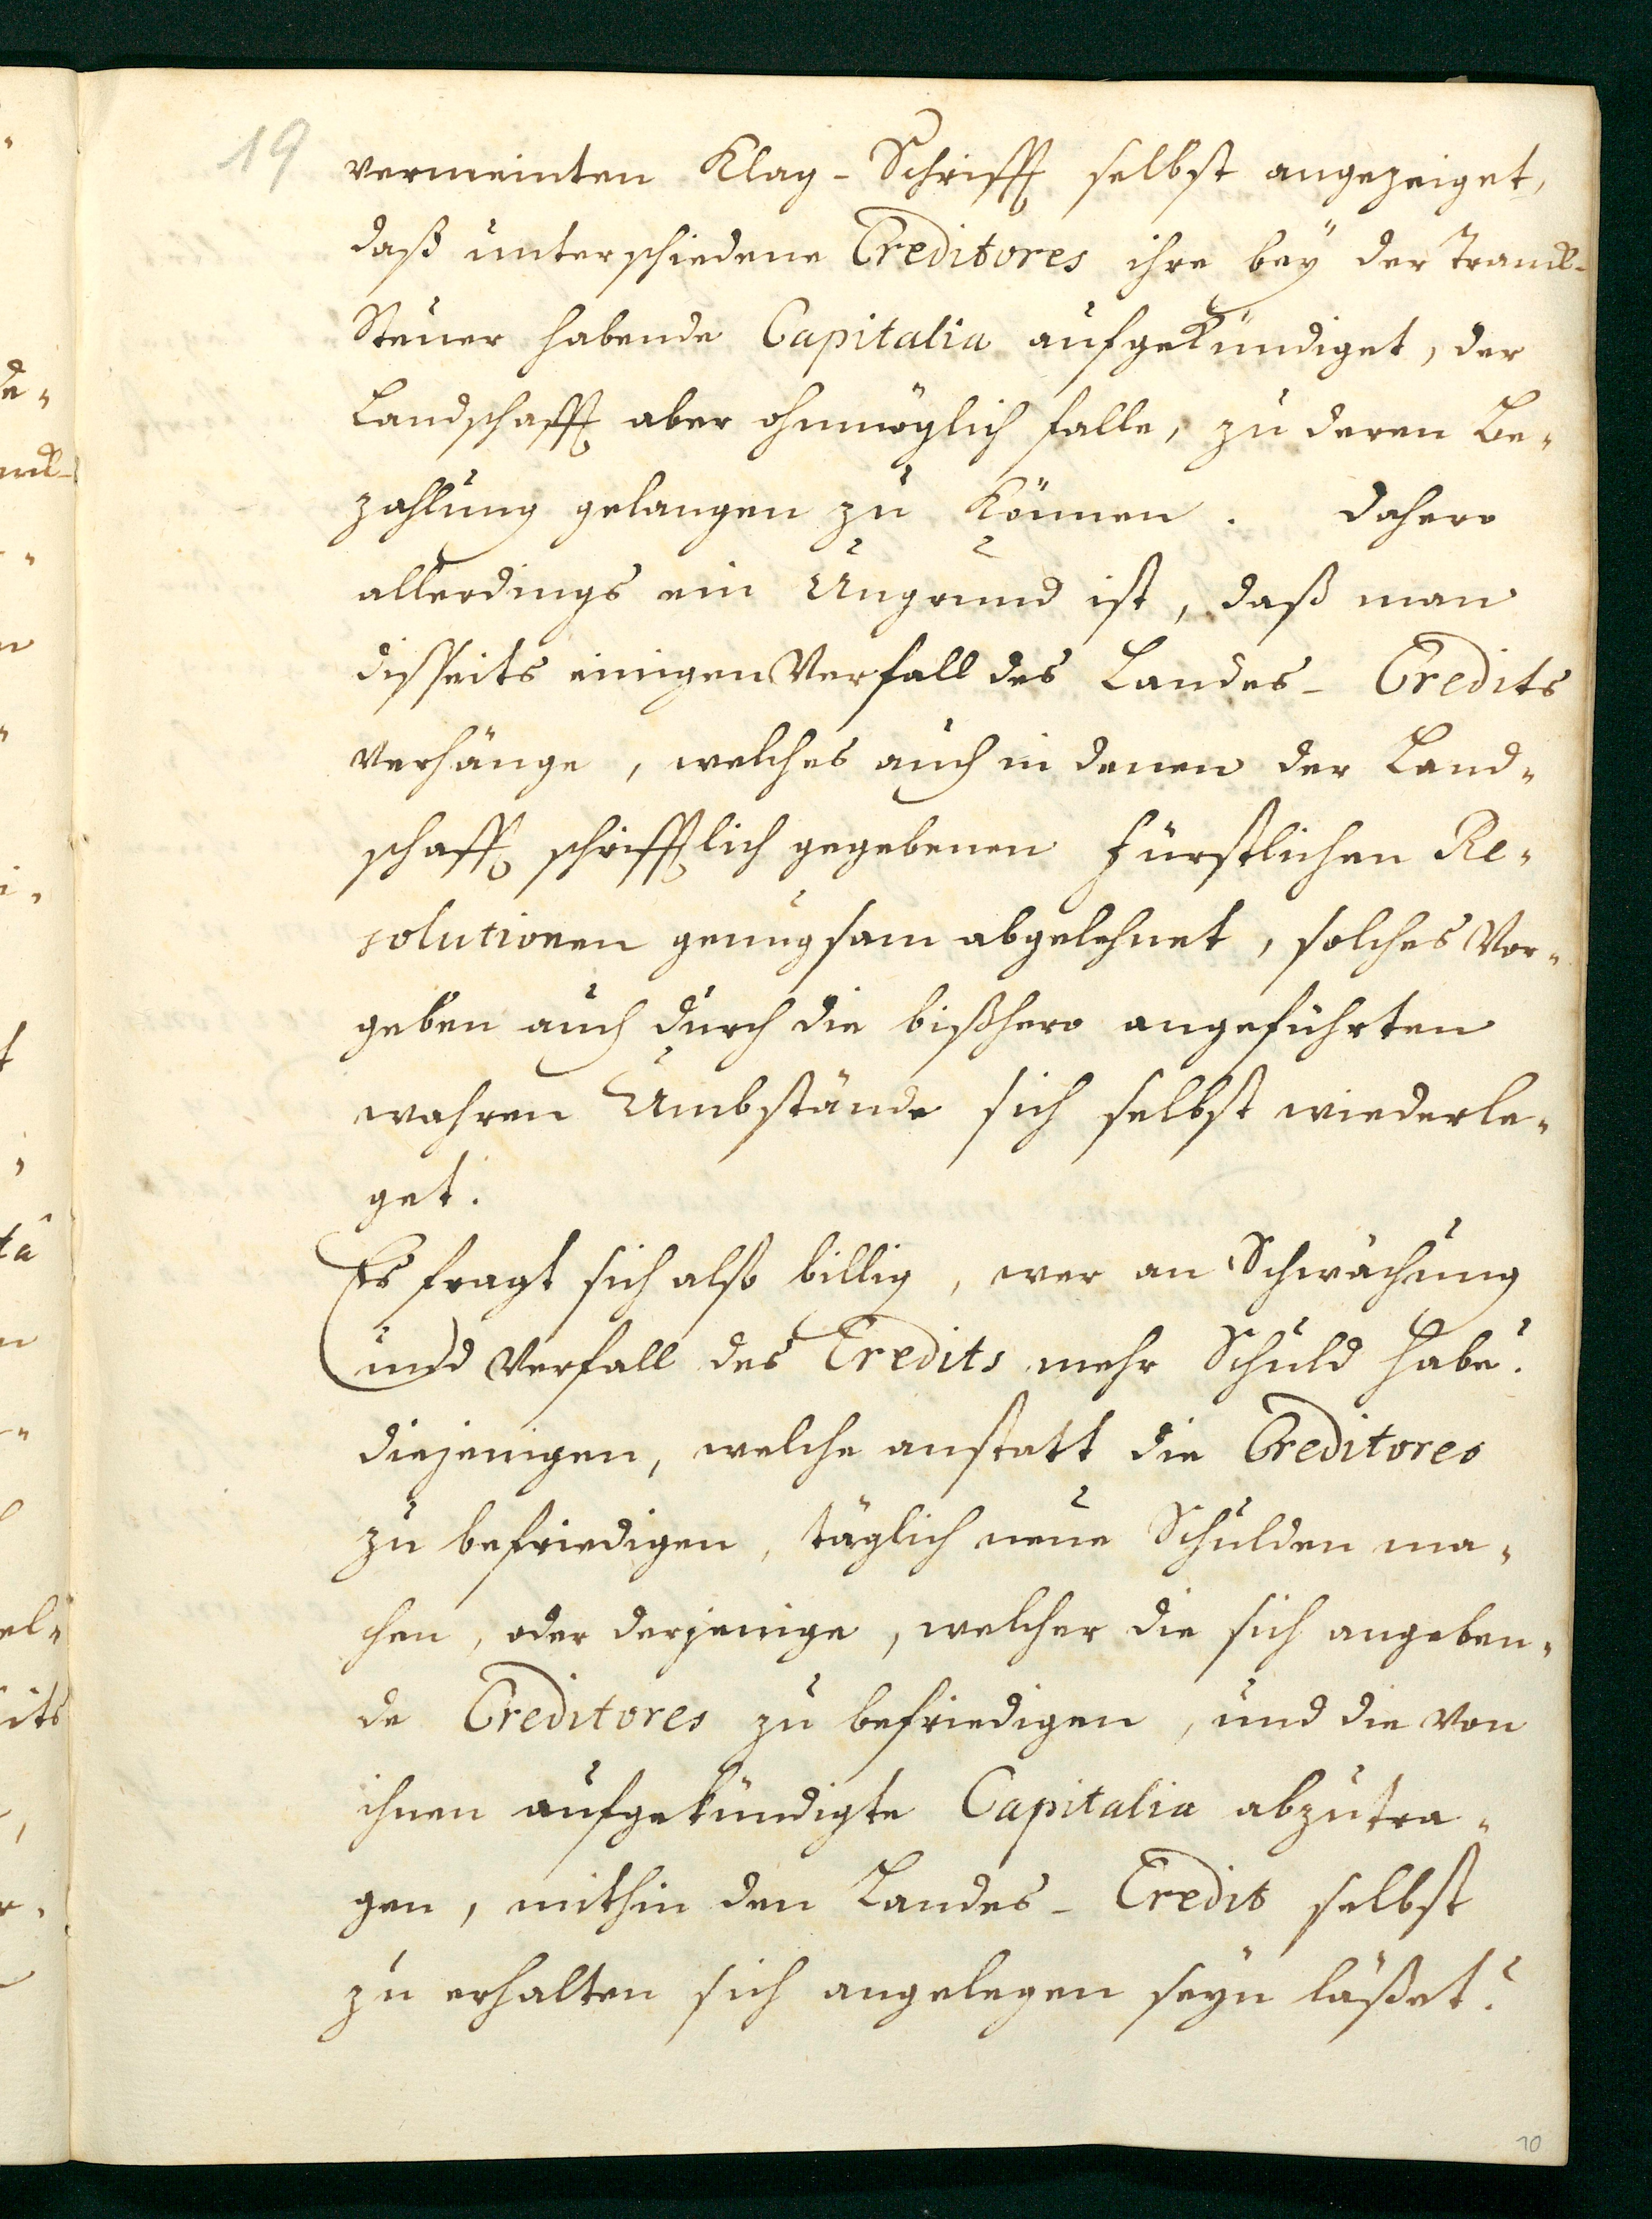 19
vermeinten Klag-Schrifft selbst angezeiget,
daß unterschiedene Creditores ihre beÿ der Tranck-
Steuer habende Capitalia aufgekündiget, der
Landschafft aber ohnmöglich falle, zu deren Be-
zahlung gelangen zu können. Dahero
allerdings ein Ungrund ist, daß man
disseits einigen Verfall des Landes-Credits
verhänge, welches auch in denen der Land-
schafft schrifftlich gegebenen Fürstlichen Re-
solutionen genugsam abgelehnet, solches Vor-
geben auch durch die bißhero angeführten
wahren Umbstände sich selbst wiederle-
get.
Es fragt sich also billig, wer an Schwächung
und Verfall des Credits mehr Schuld habe?
diejenigen, welche anstatt die Creditores
zu befriedigen, täglich neue Schulden ma-
chen, oder derjenige, welcher die sich angeben-
de Creditores zu befriedigen, und die von
ihnen aufgekündigte Capitalia abzutra-
gen, mithin den Landes-Credit selbst
zu erhalten sich angelegen seyn läßet?
10